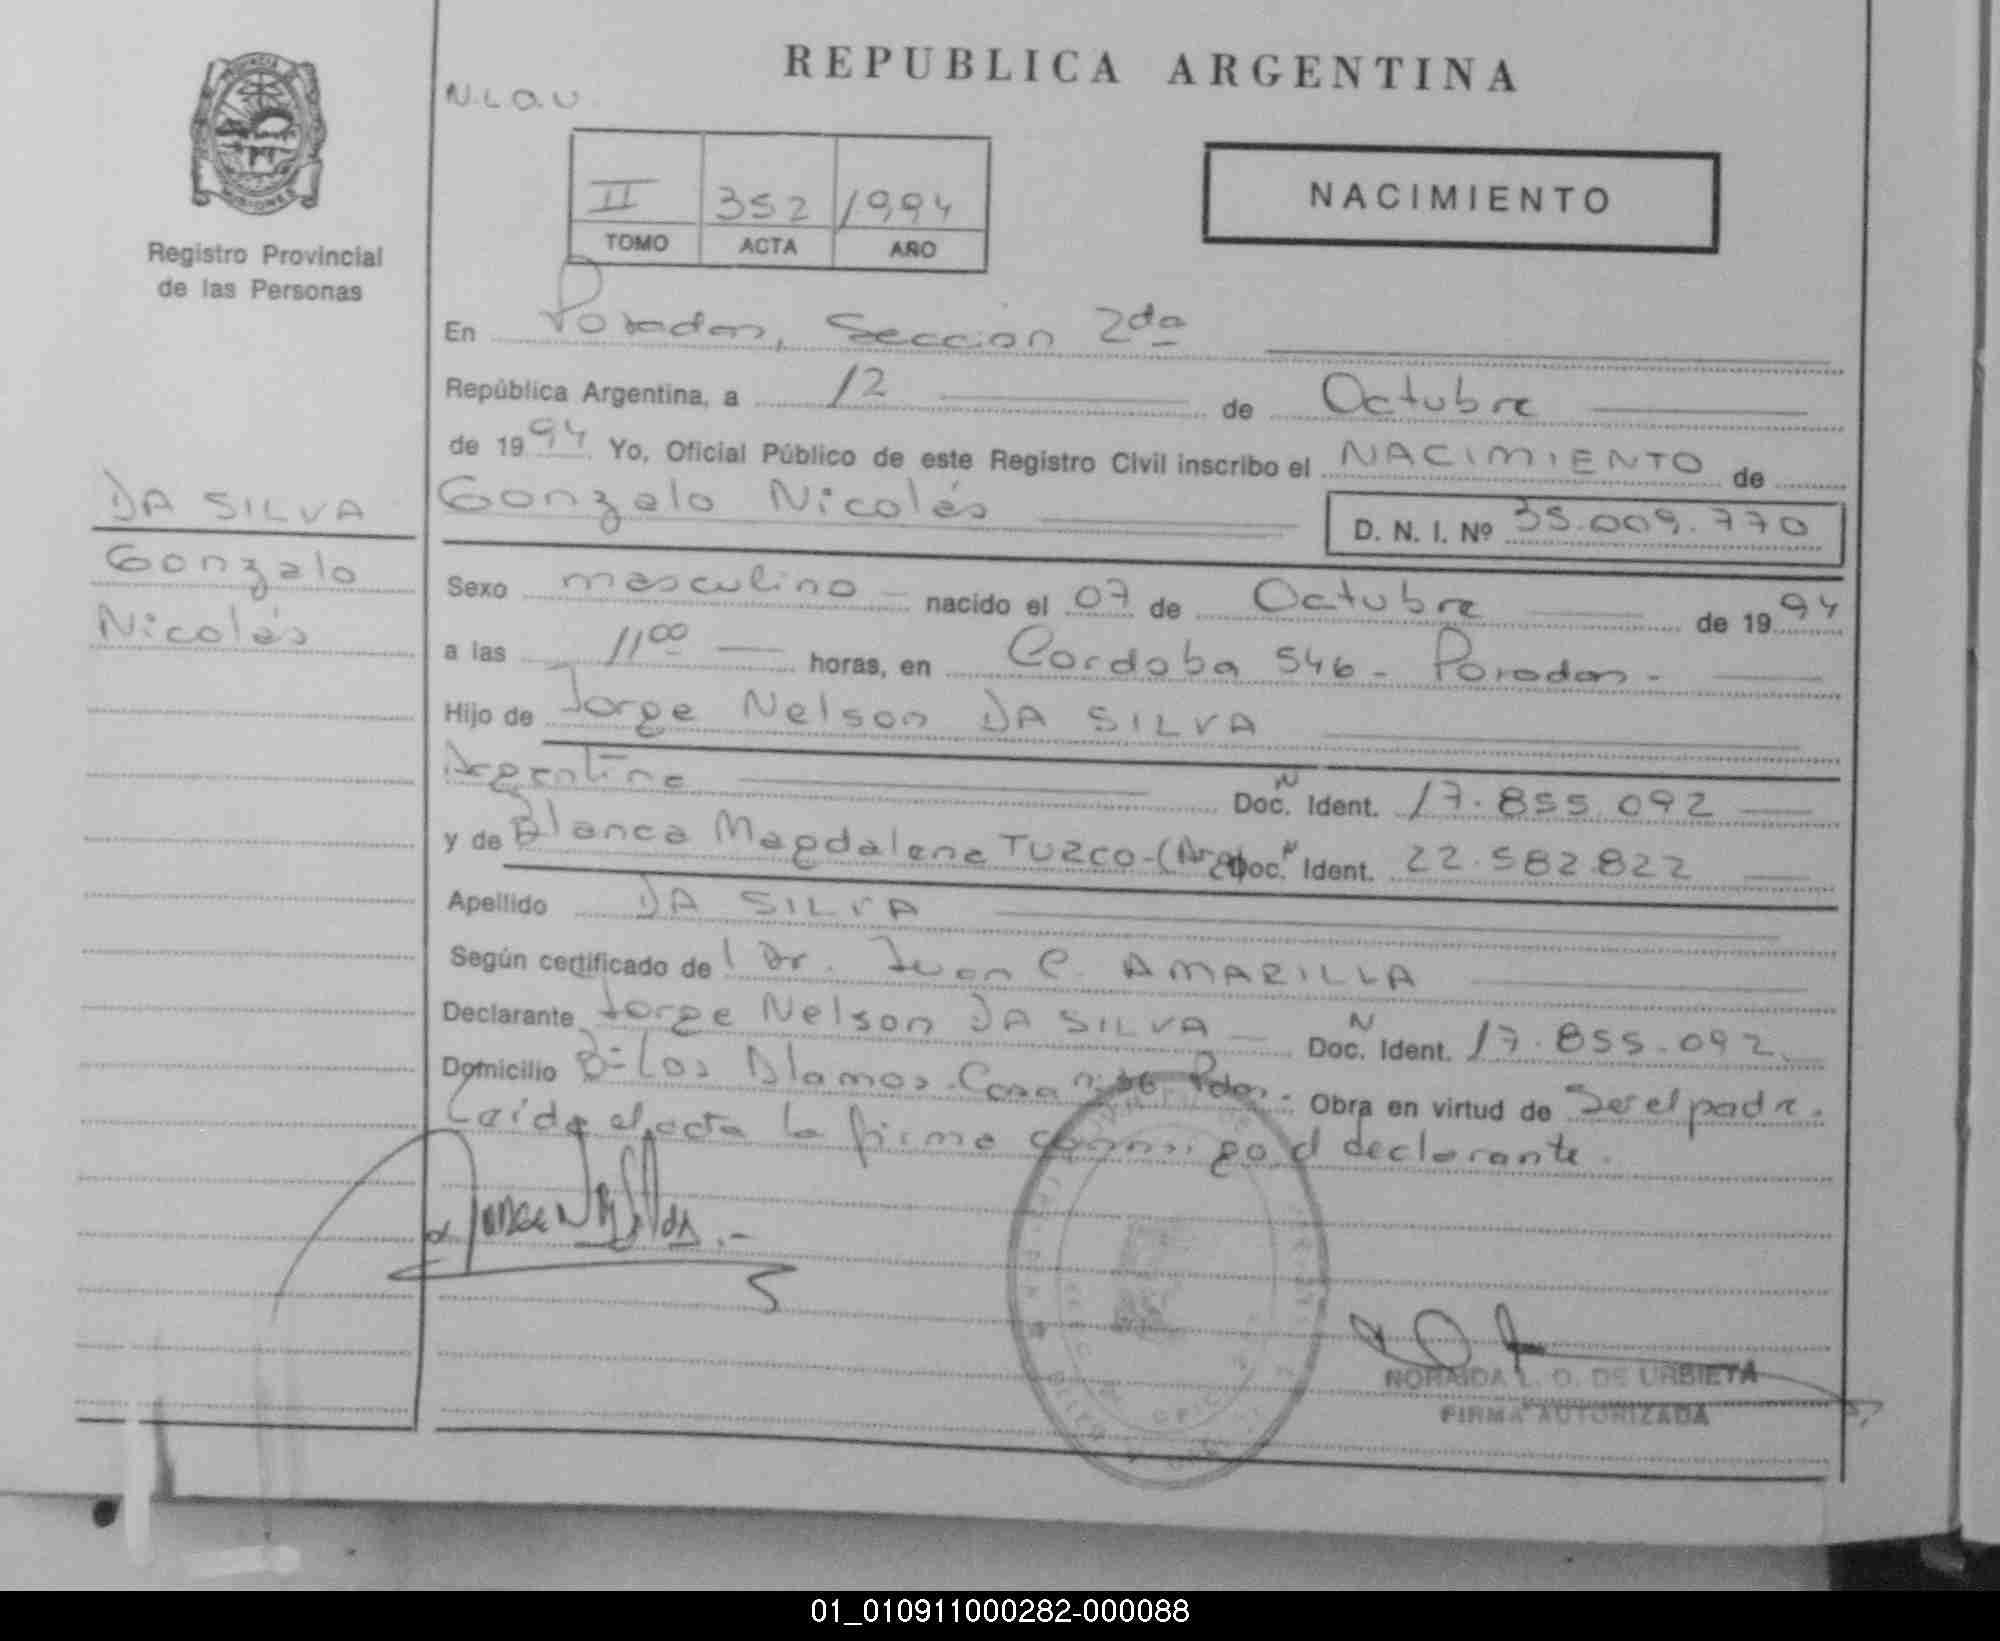 REPUBLICA ARGENTINA
N.L.O.U
II 352 1994
TOMO ACTA AÑO
NACIMIENTO
PROVINCIA
MISIONES
Registro Provincial
de las Personas
DA SILVA
Gonzalo
Nicolás
En Posadas, Sección 2da
República Argentina, a 12 de Octubre
de 1994 Yo, Oficial Público de este Registro Civil inscribo el NACIMIENTO de
Gonzalo Nicolás D. N. I. Nº 35.009.770
Sexo masculino nacido el 07 de Octubre de 1994
a las 11 00 horas, en Cordoba 546 - Posadas -
Hijo de Jorge Nelson DA SILVA
Argentino Doc. N Ident. 17.855.092
y de Blanca Magdalena TURCO - (Arg) Doc. N Ident. 22.582.822
Apellido DA SILVA
Según certificado del Dr. Juan C. AMARILLA
Declarante Jorge Nelson DA SILVA Doc. N Ident. 17.855.092
Domicilio Bº Los Alamos - Casa Pdas. Obra en virtud de Ser el padre.
Leída el acta la firma conmigo el declarante.
NORAIDA L. O. DE URBIETA
FIRMA AUTORIZADA
01_010911000282-000088